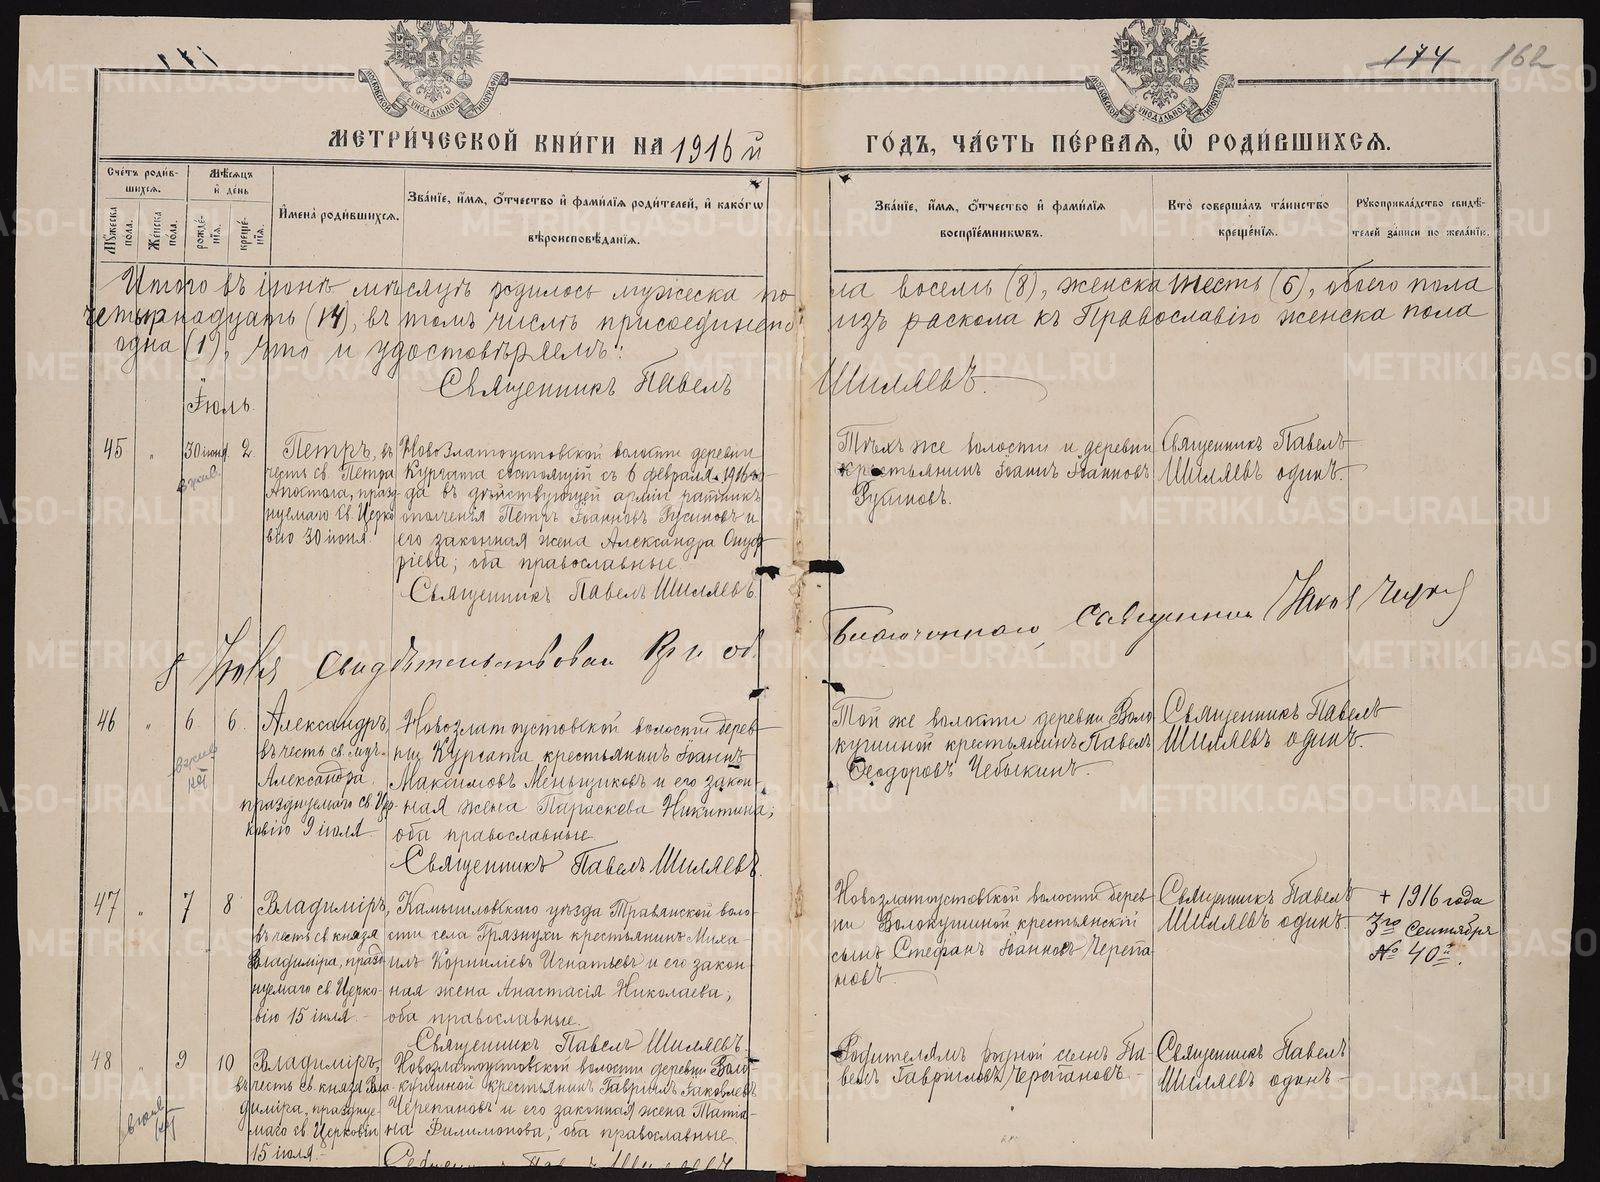 174 162
МЕТРИ́ЧЕСКОЙ КНИ́ГИ НА 1916 й ГО́ДЪ, ЧА́СТЬ ПЕ́РВАЯ, Ѽ РОДИ́ВШИХСЯ.
Сче́тъ роди́в-
шихся.
Му́жеска пола.
Же́нска пола.
Мѣ́сяцъ
и де́нь
рожде́-
нїя.
креще́-
нїя.
Имена̀ роди́вшихся.
Зва́нїе, и́мя, о́тчество и фами́лїя роди́телей, и како́гѡ
вѣроисповѣ́данїя.
Зва́нїе, и́мя, о́тчество и фами́лїя
воспрїе́мниковъ.
Кто̀ соверша́лъ та́инство
креще́нїя.
Рукоприкла́дство свидѣ́-
телей за́писи по жела́нїю.
Итого въ іюнѣ мѣсяцѣ родилось мужеска по ла восемь (8), женска шесть (6), обоего пола
четырнадцать (14), въ томъ числѣ присоединено изъ раскола къ Православію женска пола
одна (1), что и удостовѣряемъ:
Священникъ Павелъ Шиляевъ.
Іюль.
45 " 30 іюня 2
Петръ, въ
честь св. Петра
Апостола, празд-
нуемаго св. Церко
вію 30 іюня.
Новозлатоустовской волости деревни
Кургата состоящій съ 6 февраля 1916 го-
да въ дѣйствующей арміи ратникъ
ополченія Петръ Іоанновъ Русиновъ и
его законная жена Александра Онуф
ріева; оба православные.
Священникъ Павелъ Шиляевъ.
Тѣхъ же волости и деревни
крестьянинъ Іоаннъ Іоанновъ
Русиновъ.
Священникъ Павелъ
Шиляевъ одинъ.
8 Іюля Свидѣтельствовалъ
Благочинный, Священникъ
46 " 6 6.
Александръ,
въ честь св. муч.
Александра
празднуемаго св. Цер-
ковію 9 іюля.
Новозлатоустовской волости дерев-
ни Кургата крестьянинъ Іоаннъ
Максимовъ Меньщиковъ и его закон-
ная жена Параскева Никитина;
оба православные.
Священникъ Павелъ Шиляевъ.
Той же волости деревни Воло
кушиной крестьянинъ Павелъ
Ѳеодоровъ Чебыкинъ.
Священникъ Павелъ
Шиляевъ одинъ.
47 " 7 8
Владиміръ,
въ честь св. князя
Владиміра, празд
нуемаго св. Церко-
вію 15 іюля.
Камышловскаго уѣзда Травянской воло-
сти села Грязнухи крестьянинъ Миха-
илъ Корниліевъ Игнатьевъ и его закон-
ная жена Анастасія Николаева;
оба православные.
Священникъ Павелъ Шиляевъ.
Новозлатоустовской волости дерев-
ни Волокушиной крестьянскій
сынъ Стефанъ Іоанновъ Черепа-
новъ.
Священникъ Павелъ
Шиляевъ одинъ.
+ 1916 года
3го Сентября
№ 40й.
48 9 10
Владиміръ,
въ честь св. князя Вла
диміра, праздуе-
маго св. Церковію
15 іюля.
Новозлатоустовской волости деревни Воло-
кушиной крестьянинъ Гавріилъ Іаковлевъ
Черепановъ и его законная жена Татіа-
на Филимонова; оба православные.
Родителямъ родной сынъ Па-
велъ Гавріиловъ Черепановъ.
Священникъ Павелъ
Шиляевъ одинъ.